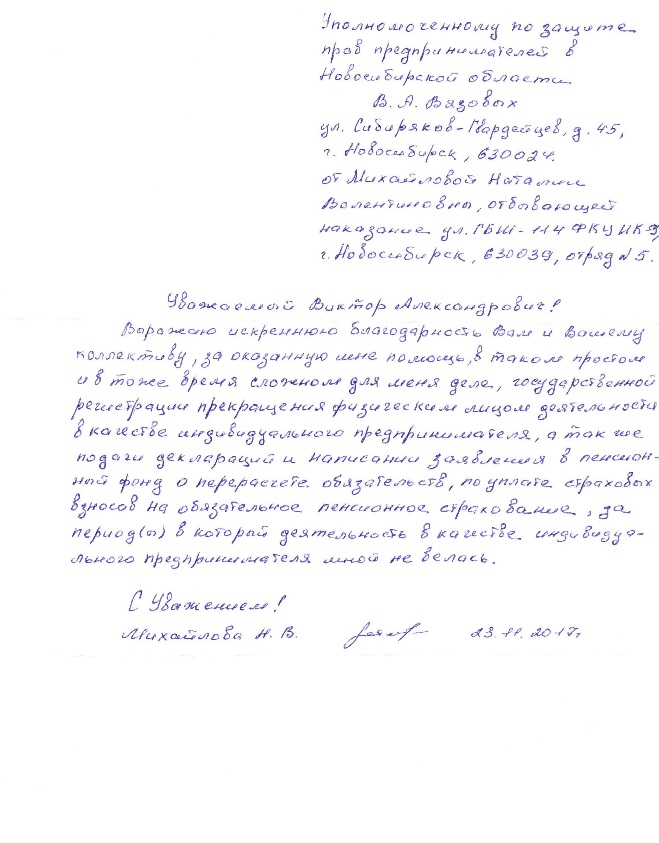 Уполномоченному по защите
прав предпринимателей в
Новосибирской области
В. А. Вязовых
ул. Сибиряков-Гвардейцев, д. 45,
г. Новосибирск, 630024.
от Михайловой Наталии
Валентиновны, отбывающей
наказание ул. ГБШ-114 ФКУ ИК-9,
г. Новосибирск, 630039, отряд N 5.
Уважаемый Виктор Александрович!
Выражаю искреннюю благодарность Вам и Вашему
коллективу, за оказанную мне помощь, в таком простом
и в тоже время сложном для меня деле, государственной
регистрации прекращения физическим лицом деятельности
в качестве индивидуального предпринимателя, а так же
подачи деклараций и написании заявления в пенсион-
ный фонд о перерасчете обязательств, по уплате страховых
взносов на обязательное пенсионное страхование, за
период(ы) в который деятельность в качестве индивидуа-
льного предпринимателя мной не велась.
С Уважением!
Михайлова Н. В. 23.11.2017г